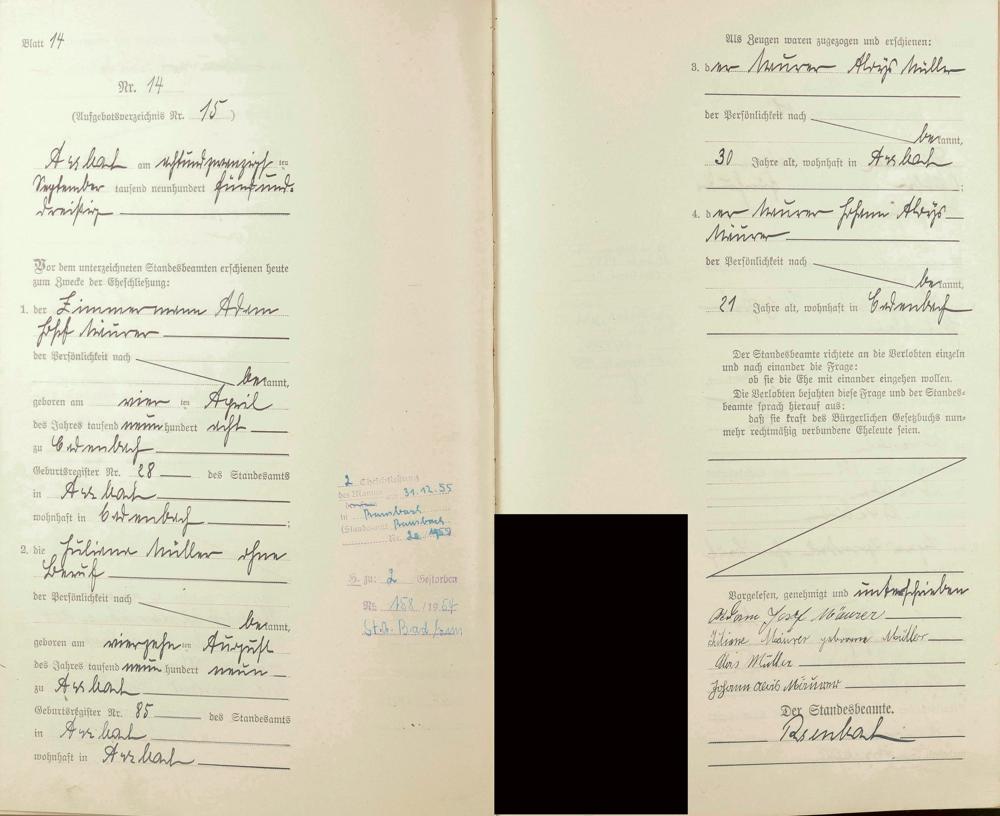 Blatt 14
Nr. 14
(Aufgebotsverzeichnis Nr. 15)
Arzbach am achtundzwanzigsten
September tausend neunhundert fünfund-
dreißig
Vor dem unterzeichneten Standesbeamten erschienen heute
zum Zwecke der Eheschließung:
1. der Zimmermann Adam
Josef Mäurer
der Persönlichkeit nach
bekannt,
geboren am vierten April
des Jahres tausend neunhundert acht
zu Cadenbach
Geburtsregister Nr. 28 des Standesamts
in Arzbach
wohnhaft in Cadenbach;
2. die Juliana Müller ohne
Beruf
der Persönlichkeit nach
bekannt,
geboren am vierzehnten August
des Jahres tausend neunhundert neun
zu Arzbach
Geburtsregister Nr. 85 des Standesamts
in Arzbach
wohnhaft in Arzbach
2 Eheschließung
des Mannes am 31.12.55
in Ransbach
(Standesamt Ransbach
Nr.
H. zu: 2 Gestorben
Nr. 158/1964
St.A. Bad Ems
Als Zeugen waren zugezogen und erschienen:
3. der Maurer Aloys Müller
der Persönlichkeit nach
bekannt,
30 Jahre alt, wohnhaft in Arzbach
;
4. der Maurer Johann Aloys
Mäurer
der Persönlichkeit nach
bekannt,
21 Jahre alt, wohnhaft in Cadenbach
Der Standesbeamte richtete an die Verlobten einzeln
und nach einander die Frage:
ob sie die Ehe mit einander eingehen wollen.
Die Verlobten bejahten diese Frage und der Standes-
beamte sprach hierauf aus:
daß sie kraft des Bürgerlichen Gesetzbuchs nun-
mehr rechtmäßig verbundene Eheleute seien.
Vorgelesen, genehmigt und unterschrieben
Adam Josef Mäurer
Juliane Mäurer geborene Müller
Alois Müller
Johann Alois Mäurer
Der Standesbeamte.